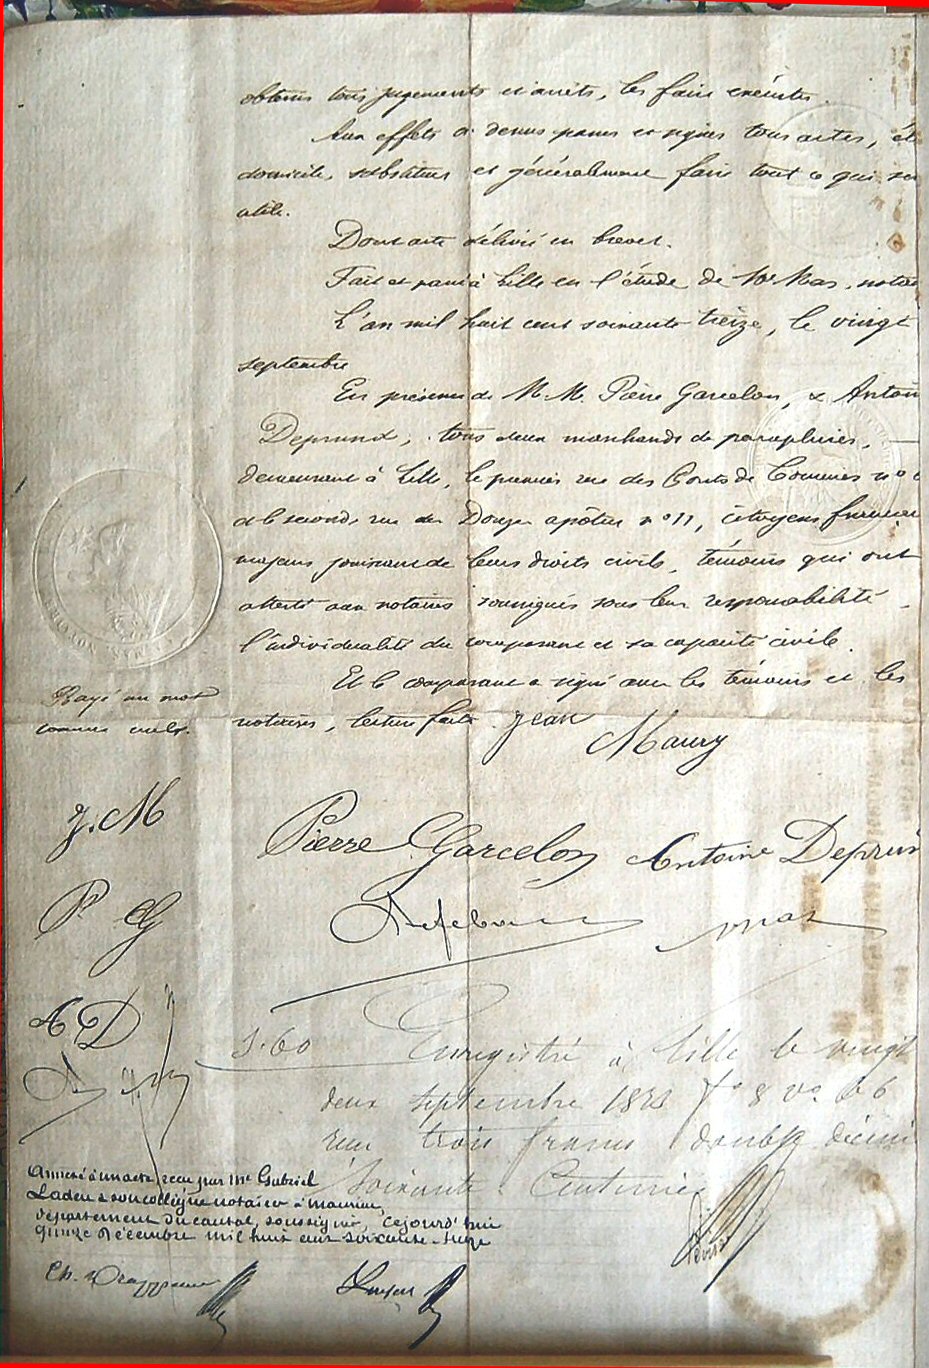 obtenir tous jugements et arrêts, les faire exécuter.
Aux effets ci dessus passer et signer tous actes, él
domicile, substituer et généralement faire tout ce qui se
utile.
Dont acte délivré en brevet.
Fait et passé à Lille en l'étude de Me Mas, notai
L'an mil huit cent soixante treize, le vingt
septembre
En présence de M.M. Pierre Garcelon, & Antoin
Deprund, tous deux marchands de parapluies,
demeurant à Lille, le premier rue des Ponts de Comines no
et le second, rue des Douze apôtres no 11, citoyens français
majeurs jouissant de leurs droits civils, témoins qui ont
attesté aux notaires soussignés sous leur responsabilité
l'individualité du comparant et sa capacité civile.
Et le comparant a signé avec les témoins et les
notaires, lecture faite. Jean
Maury
Rayé un mot
comme nul.
J. M
Pierre Garcelon Antoine Deprun
P. G
Mas
A D
3.60 Enregistré à Lille le vingt
deux septembre 1873 fo 8 vo
trois francs double décime
soixante Centimes
Annexé à un acte reçu par Me Gabriel
Ladeu & son collègue notaires à Mauriac,
département du cantal, soussignés, cejourd'hui
quinze décembre mil huit cent soixante-treize
Ch.